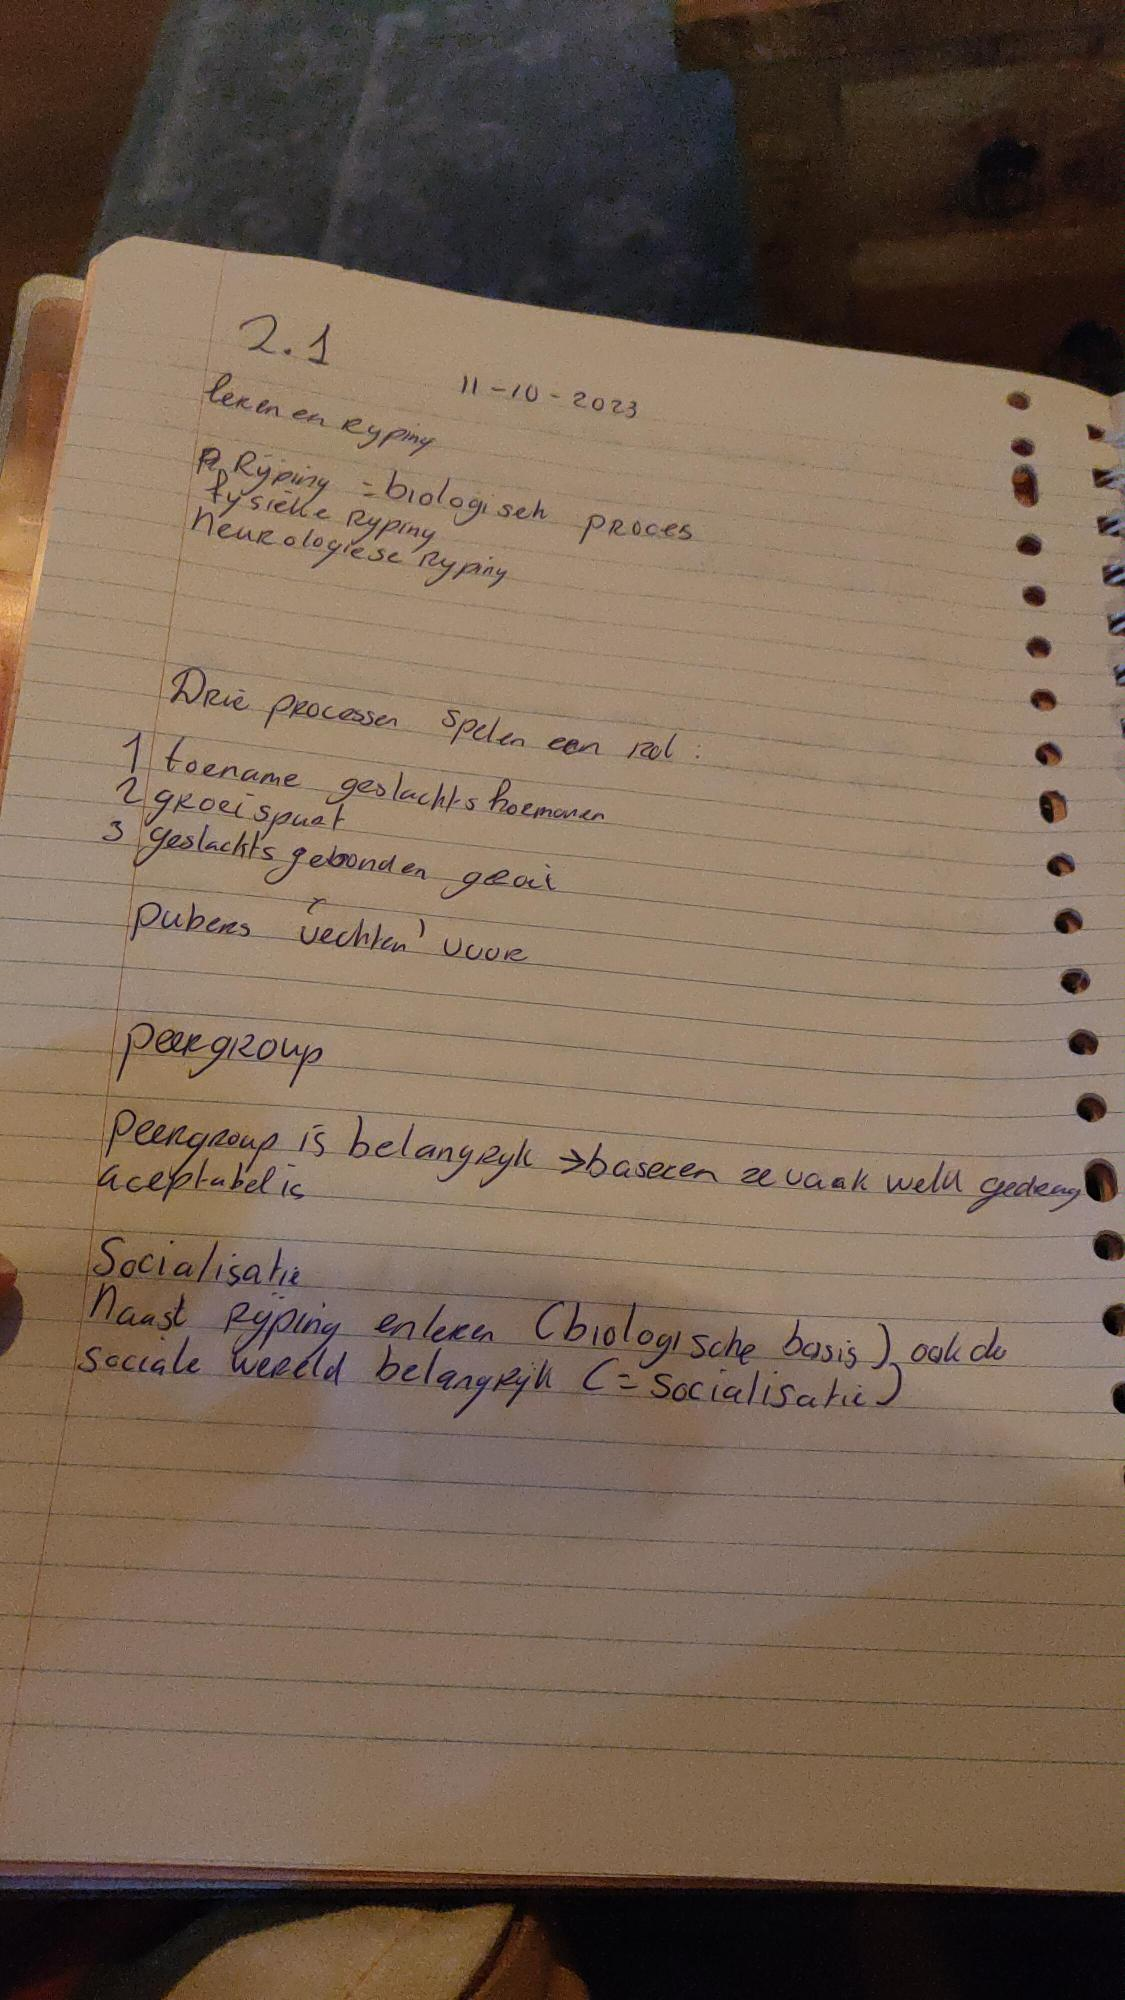 2.1
11-10-2023
leren en rijping
Rijping = biologisch proces
fysieke rijping
Neurologiese rijping
Drie processen spelen een rol:
1 toename geslachtshormonen
2 groeispurt
3 geslachts gebonden groei
pubers 'vechten' voor
peergroup
peergroup is belangrijk → baseren ze vaak welk gedrag
aceptabel is
Socialisatie
Naast rijping en leren (biologische basis) ook de
sociale wereld belangrijk (= socialisatie)